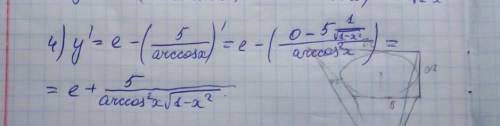 4) y' = e - (5/arccosx)' = e - ((0 - 5 1/√(1-x²))/arccos²x) =
= e + 5/(arccos²x √(1-x²))